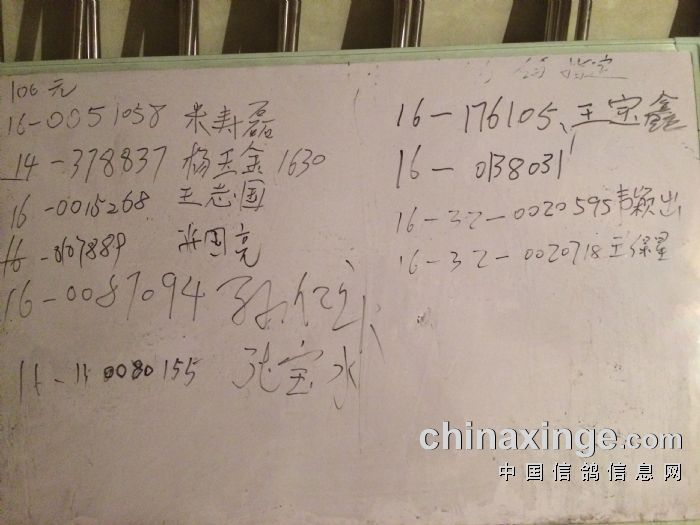 100元
16-0051058 米寿磊
14-378837 杨玉金 1630
16-0015268 王志国
16-167889 国亮
16-0087094 孙
0080155 张宝水
指定
16-176105、王宗鑫
16-0138031
16-32-0020595 韦颖出
16-32-0020718 王保星
chinaxinge.com
中国信鸽信息网